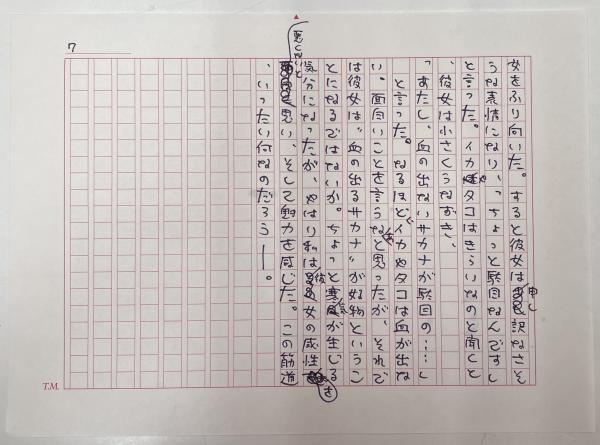 7
女をふり向いた。すると彼女は申し訳なさそ
うな表情になり、「ちょっと駄目なんです」
と言った。イカやタコはきらいなのと聞くと
、彼女は小さくうなずき、
「あたし、血の出ないサカナが駄目の……」
と言った。なるほど、イカやタコは血が出な
い。面白いことを言うなあと思ったが、それで
は彼女は"血の出るサカナ"が好物というこ
とになるではないか。ちょっと寒気が生じる
気分になったが、やはり私は彼女の感性を
悪くないと思い、そして魅力を感じた。この筋道
、いったい何なのだろう――。
T.M.